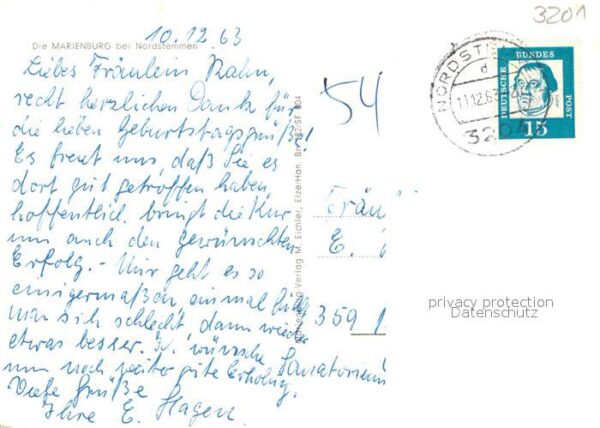 3201
10.12.63
Die MARIENBURG bei Nordstemmen
Liebes Fräulein Rahn,
recht herzlichen Dank für
die lieben Geburtstagsgrüße!
Es freut uns, daß Sie es
dort gut getroffen haben,
hoffentlich bringt die Kur
nun auch den gewünschten
Erfolg. - Mir geht es so
einigermaßen, einmal fühlt
man sich schlecht, dann wieder
etwas besser. wünsche
nun noch weiter gute Erholung.
Viele Grüße
Ihre E. Hagen.
54
Verlag M. Eichler, Elze/Han.
NORDST
d
11.12.63
3204
DEUTSCHE BUNDES POST
15
Fräu
E.
359
Sanatorium
privacy protection
Datenschutz